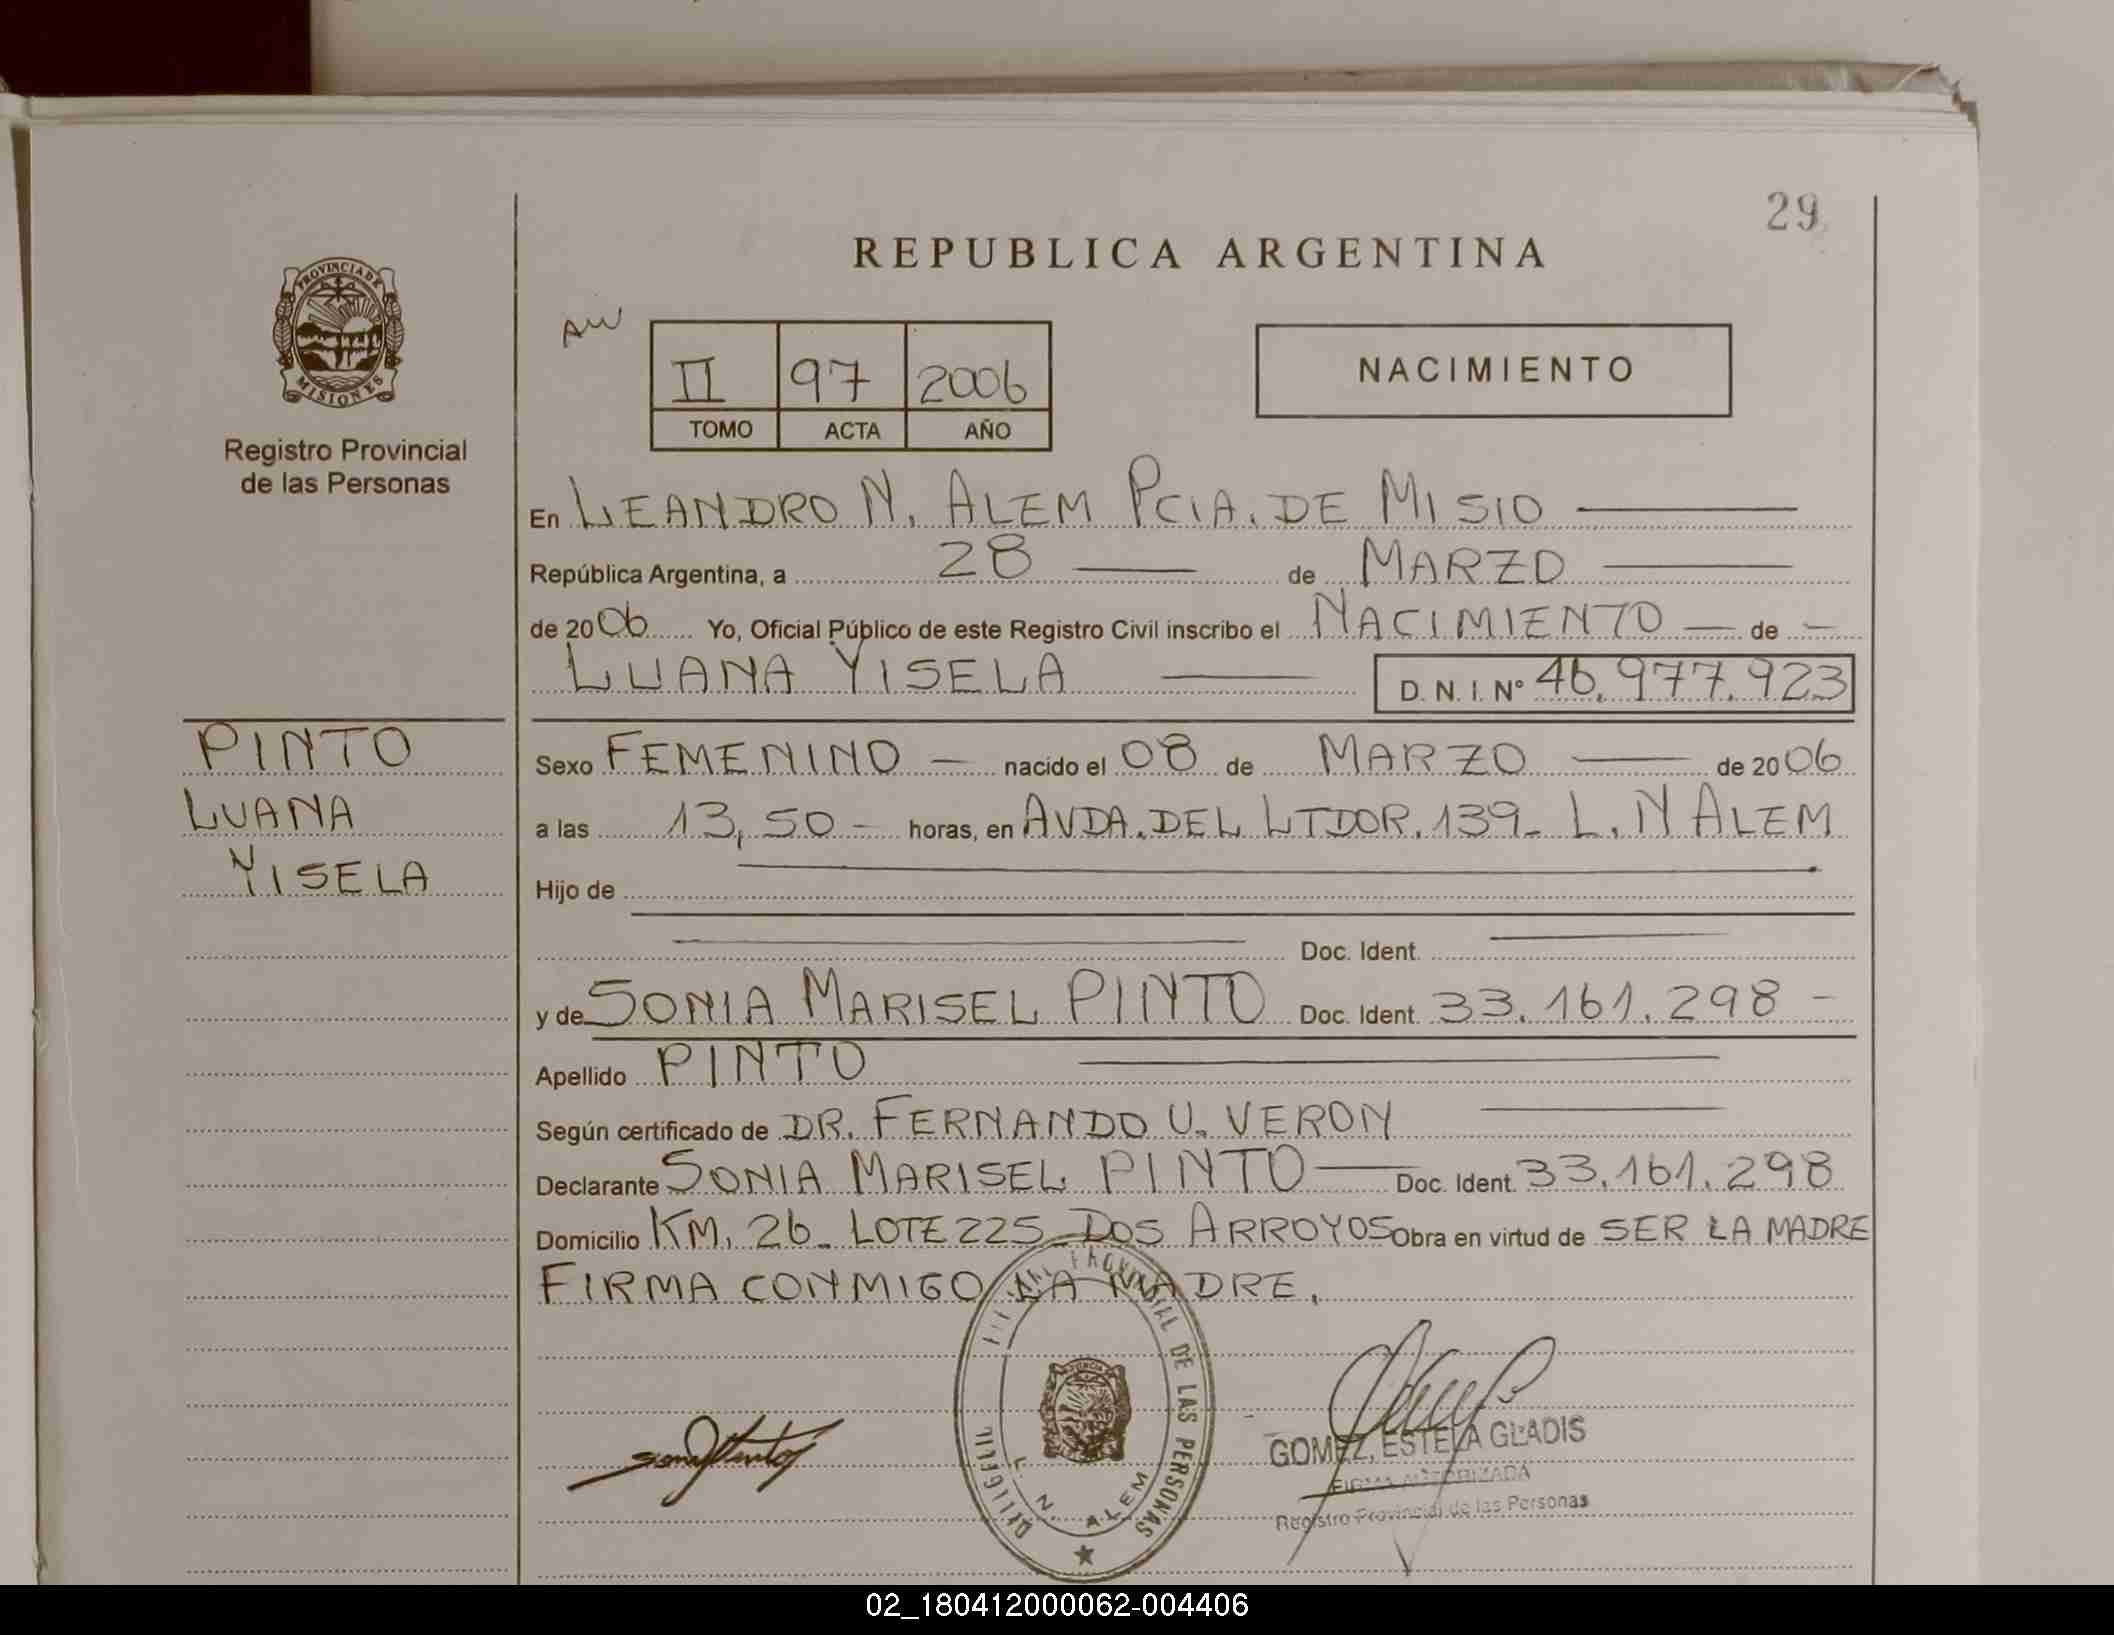 29
REPUBLICA ARGENTINA
PROVINCIA DE
MISIONES
Registro Provincial
de las Personas
AW
II 97 2006
TOMO ACTA AÑO
NACIMIENTO
En LEANDRO N. ALEM PCIA. DE MISIO
República Argentina, a 28 de MARZO
de 2006 Yo, Oficial Público de este Registro Civil inscribo el NACIMIENTO — de —
LUANA YISELA D. N. I. Nº 46.977.923
PINTO
LUANA
YISELA
Sexo FEMENINO — nacido el 08 de MARZO de 2006
a las 13,50 - horas, en AVDA. DEL LTDOR. 139_ L. N ALEM
Hijo de
Doc. Ident.
y de SONIA MARISEL PINTO Doc. Ident. 33.161.298 -
Apellido PINTO
Según certificado de DR. FERNANDO U. VERON
Declarante SONIA MARISEL PINTO Doc. Ident. 33.161.298
Domicilio KM. 26_ LOTE 225_ DOS ARROYOS Obra en virtud de SER LA MADRE
FIRMA CONMIGO LA MADRE.
PROVINCIAL DE LAS PERSONAS
L. N. ALEM
GOMEZ, ESTELA GLADIS
FIRMA AUTORIZADA
Registro Provincial de las Personas
02_180412000062-004406